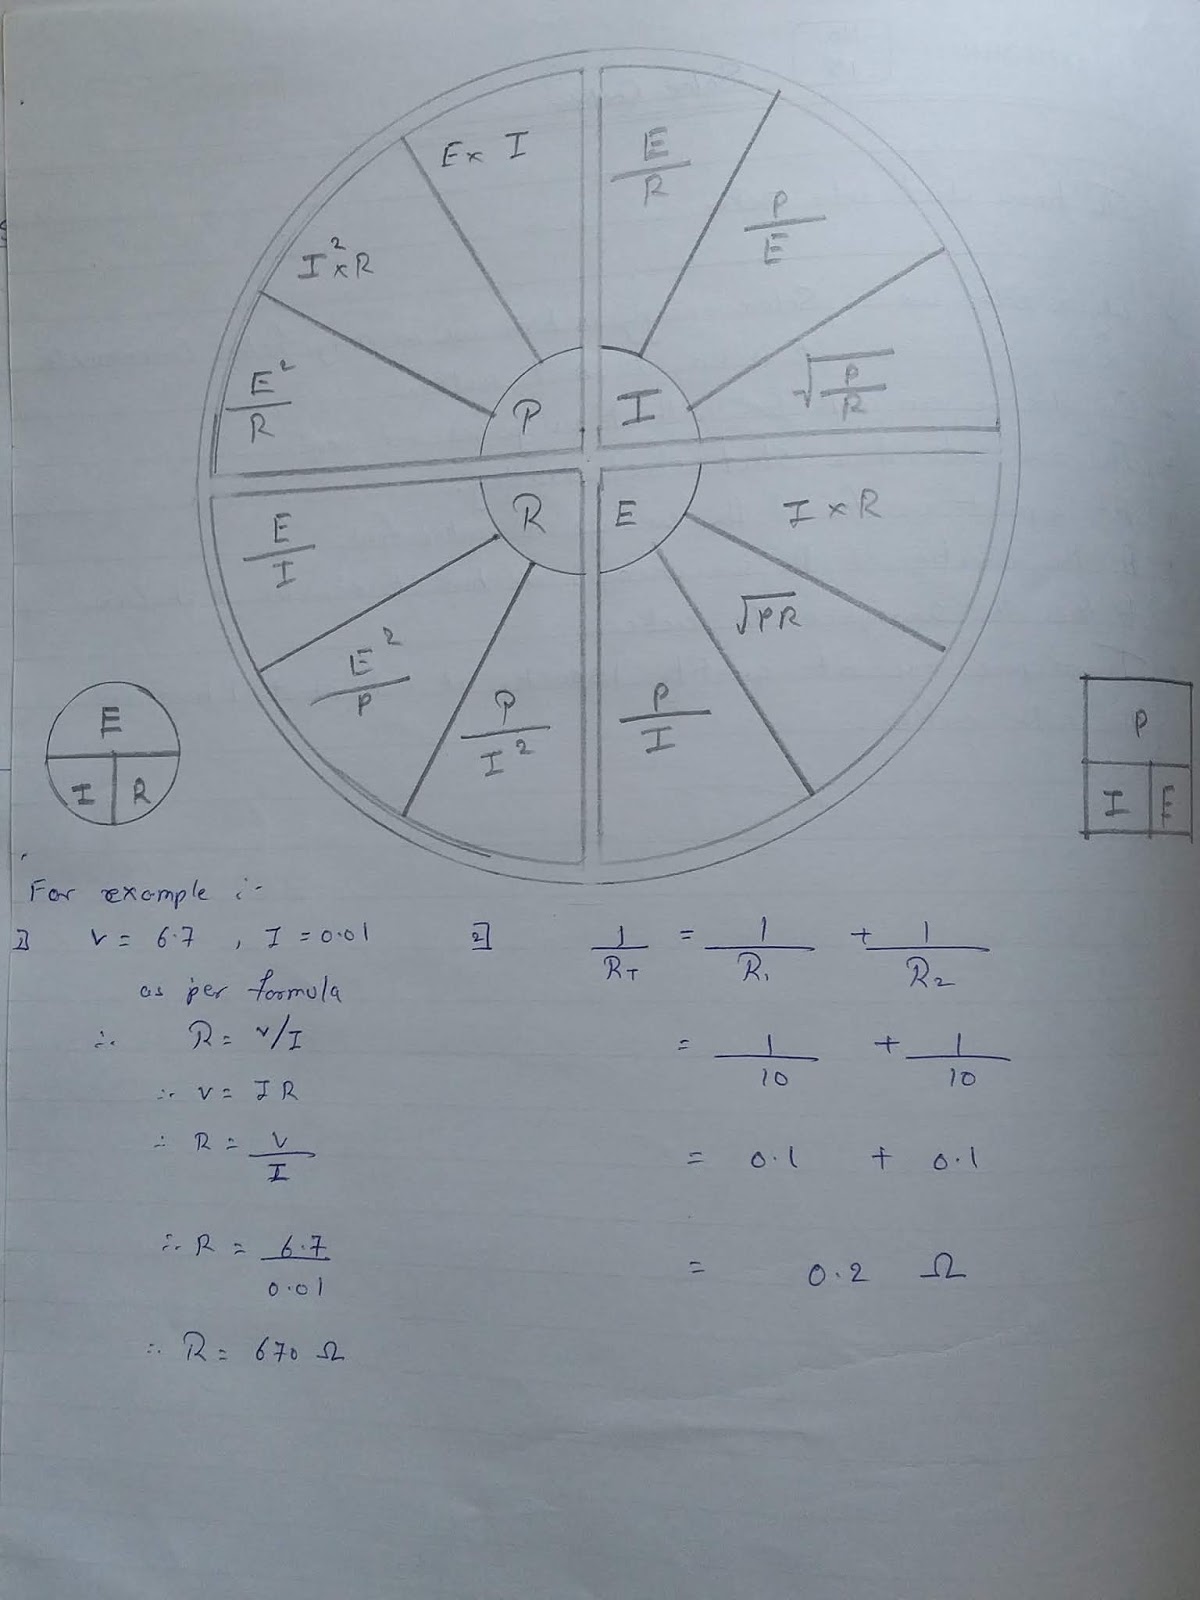 E x I
E
R
P
E
I² x R
√P/R
E²
R
P
I
R
E
I x R
E
I
√PR
E²
P
P
I²
P
I
E
I
R
P
I
E
For example :-
1] V = 6.7 , I = 0.01
as per formula
∴ R = V/I
∴ V = I R
∴ R = V
I
∴ R = 6.7
0.01
∴ R = 670 Ω
2] 1/RT = 1/R1 + 1/R2
= 1/10 + 1/10
= 0.1 + 0.1
= 0.2 Ω